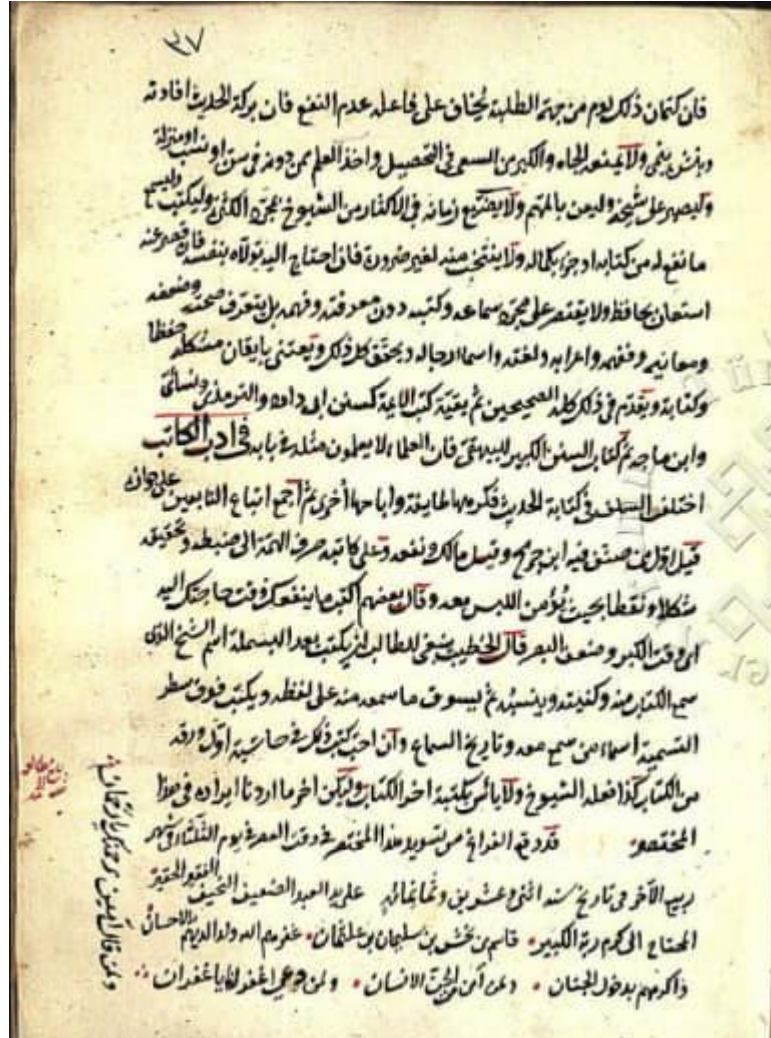 ٣٧
فان كتمان ذلك لوم من جهة الطلبة يخاف على فاعله عدم النفع فان بركة الحديث افادته
وبنشره ينمى ولا يمنعه الحياء والكبر من السعى فى التحصيل واخذ العلم ممن دونه فى سن او نسب او منزلة
وليصبر على شيخه وليعن بالمهم ولا يضيع زمانه فى الاكثار من الشيوخ لمجرد الكثرة وليكتب وليسمع
ما نفع له من كتاب او جزء بكماله ولا ينتخب منه لغير ضرورة فان احتاج اليه تولاه بنفسه فان قصر عنه
استعان بحافظ ولا يقتصر على مجرد سماعه وكتبه دون معرفته وفهمه بل يتعرف صحته وضعفه
ومعانيه وفقهه واعرابه ولغته واسما رجاله ويحقق كل ذلك ويعتنى بإيقان مشكله حفظا
وكتابة ويقدم فى ذلك كله الصحيحين ثم بقية كتب الائمة كسنن ابى داود والترمذى ونسائى
وابن ماجه ثم كتاب السنن الكبير للبيهقى فان العلماء لا يعلمون مثله فى بابه فى ادب الكاتب
اختلف السلف فى كتابة الحديث فكرهها طايفة واباحها أخرى ثم أجمع اتباع التابعين على جوازه
قيل اول من صنف فيه ابن جريج وقيل مالك ونعه وعلى كاتبه صرف الهمة الى ضبطه وتحقيقه
شكلا ونقطا بحيث يؤمن اللبس معه وقال بعضهم اكتب ما ينفعك وقت حاجتك اليه
اى وقت الكبر وضعف البصر قال الخطيب ينبغى للطالب ان يكتب بعد البسملة اسم الشيخ الذى
سمع الكتاب منه وكنيته وينسبه ثم يسوق ما سمعه منه على لفظه ويكتب فوق سطر
التسمية اسماء من سمع معه وتاريخ السماع وان احب كتب ذلك فى حاشية اول ورقة
من الكتاب كذا فعله الشيوخ ولا باس بكتبه اخر الكتاب وليكن اخر ما اردنا ايراده فى هذا
المختصر قد وقع الفراغ من تسويد هذا المختصر فى وقت العصر فى يوم الثلثاء فى شهر
ربيع الآخر فى تاريخ سنه اثنى وعشرين وثمانمائه على يد العبد الضعيف النحيف الفقير الحقير
المحتاج الى كرم ربه الكبير قاسم بن بخش بن سليمان بن علثمان غفرهم الله ولوالديهم بالاحسان
واكرمهم بدخول الجنان ومن آمن من الجن والانسان ولمن دعى اغفر لنا يا غفران
ولمن قال آمين برحمتك يا رحمان